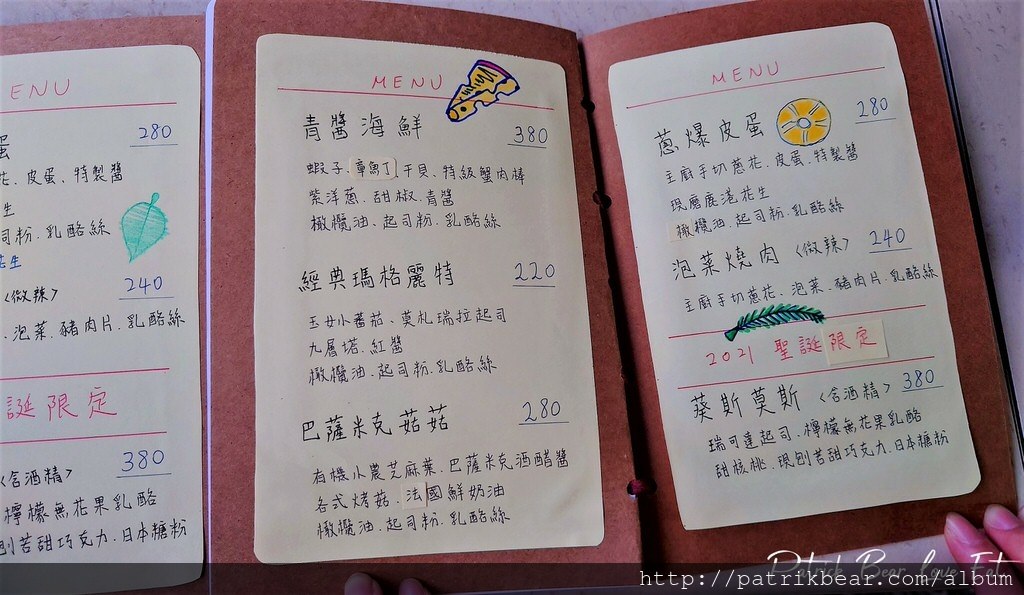 ENU
蛋 280
花、皮蛋、特製醬
生
司粉.乳酪絲
花生
<微辣> 240
、泡菜、豬肉片.乳酪絲
誕限定
<含酒精> 380
檸檬無花果乳酪
刨苦甜巧克力.日本糖粉
MENU
青醬海鮮 380
蝦子.章魚丁.干貝、特級蟹肉棒
紫洋蔥.甜椒.青醬
橄欖油.起司粉.乳酪絲
經典瑪格麗特 220
玉女小番茄、莫札瑞拉起司
九層塔.紅醬
橄欖油.起司粉.乳酪絲
巴薩米克菇菇 280
有機小農芝麻葉.巴薩米克酒醋醬
各式烤菇.法國鮮奶油
橄欖油.起司粉.乳酪絲
MENU
蔥爆皮蛋 280
主廚手切蔥花、皮蛋、特製醬
現磨鹿港花生
橄欖油.起司粉.乳酪絲
泡菜燒肉 <微辣> 240
主廚手切蔥花、泡菜、豬肉片.乳酪絲
2021 聖誕限定
葵斯莫斯 <含酒精> 380
瑞可達起司.檸檬無花果乳酪
甜核桃.現刨苦甜巧克力.日本糖粉
Patrik Bear love Eat
http://patrikbear.com/album